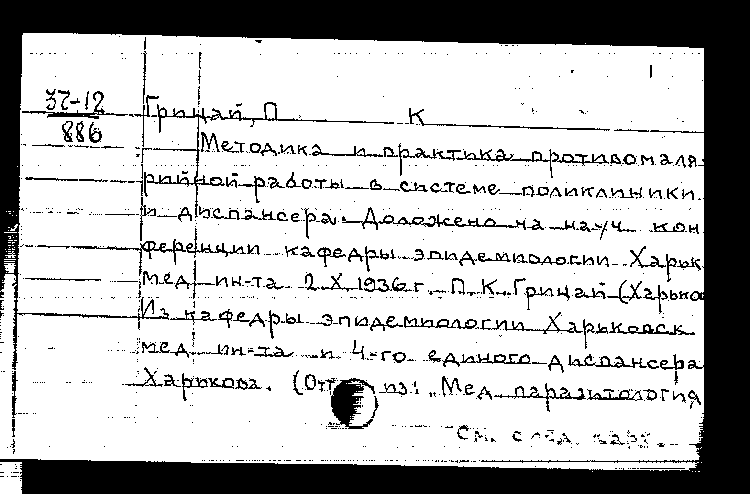 37-12
886
Грицай, П К
Методика и практика противомаля-
рийной работы в системе поликлиники
и диспансера. Доложено на науч. кон
ференции кафедры эпидемиологии Харьк
мед ин-та 2.X.1936 г. П. К. Грицай (Харько
Из кафедры эпидемиологии Харьковск
мед ин-та и 4-го единого диспансера
Харькова. (От из: "Мед паразитология
См. след. карт.